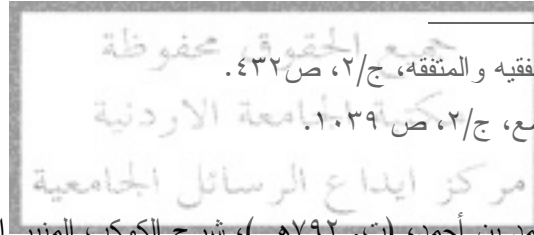 جميع الحقوق محفوظة
فقيه والمتفقه، ج/٢، ص٤٣٢.
مكتبة الجامعة الاردنية
مع، ج/٢، ص ١٠٣٩.
مركز ايداع الرسائل الجامعية
بن أحمد، (ت، ٧٩٢هـ)، شرح الكوكب المنير